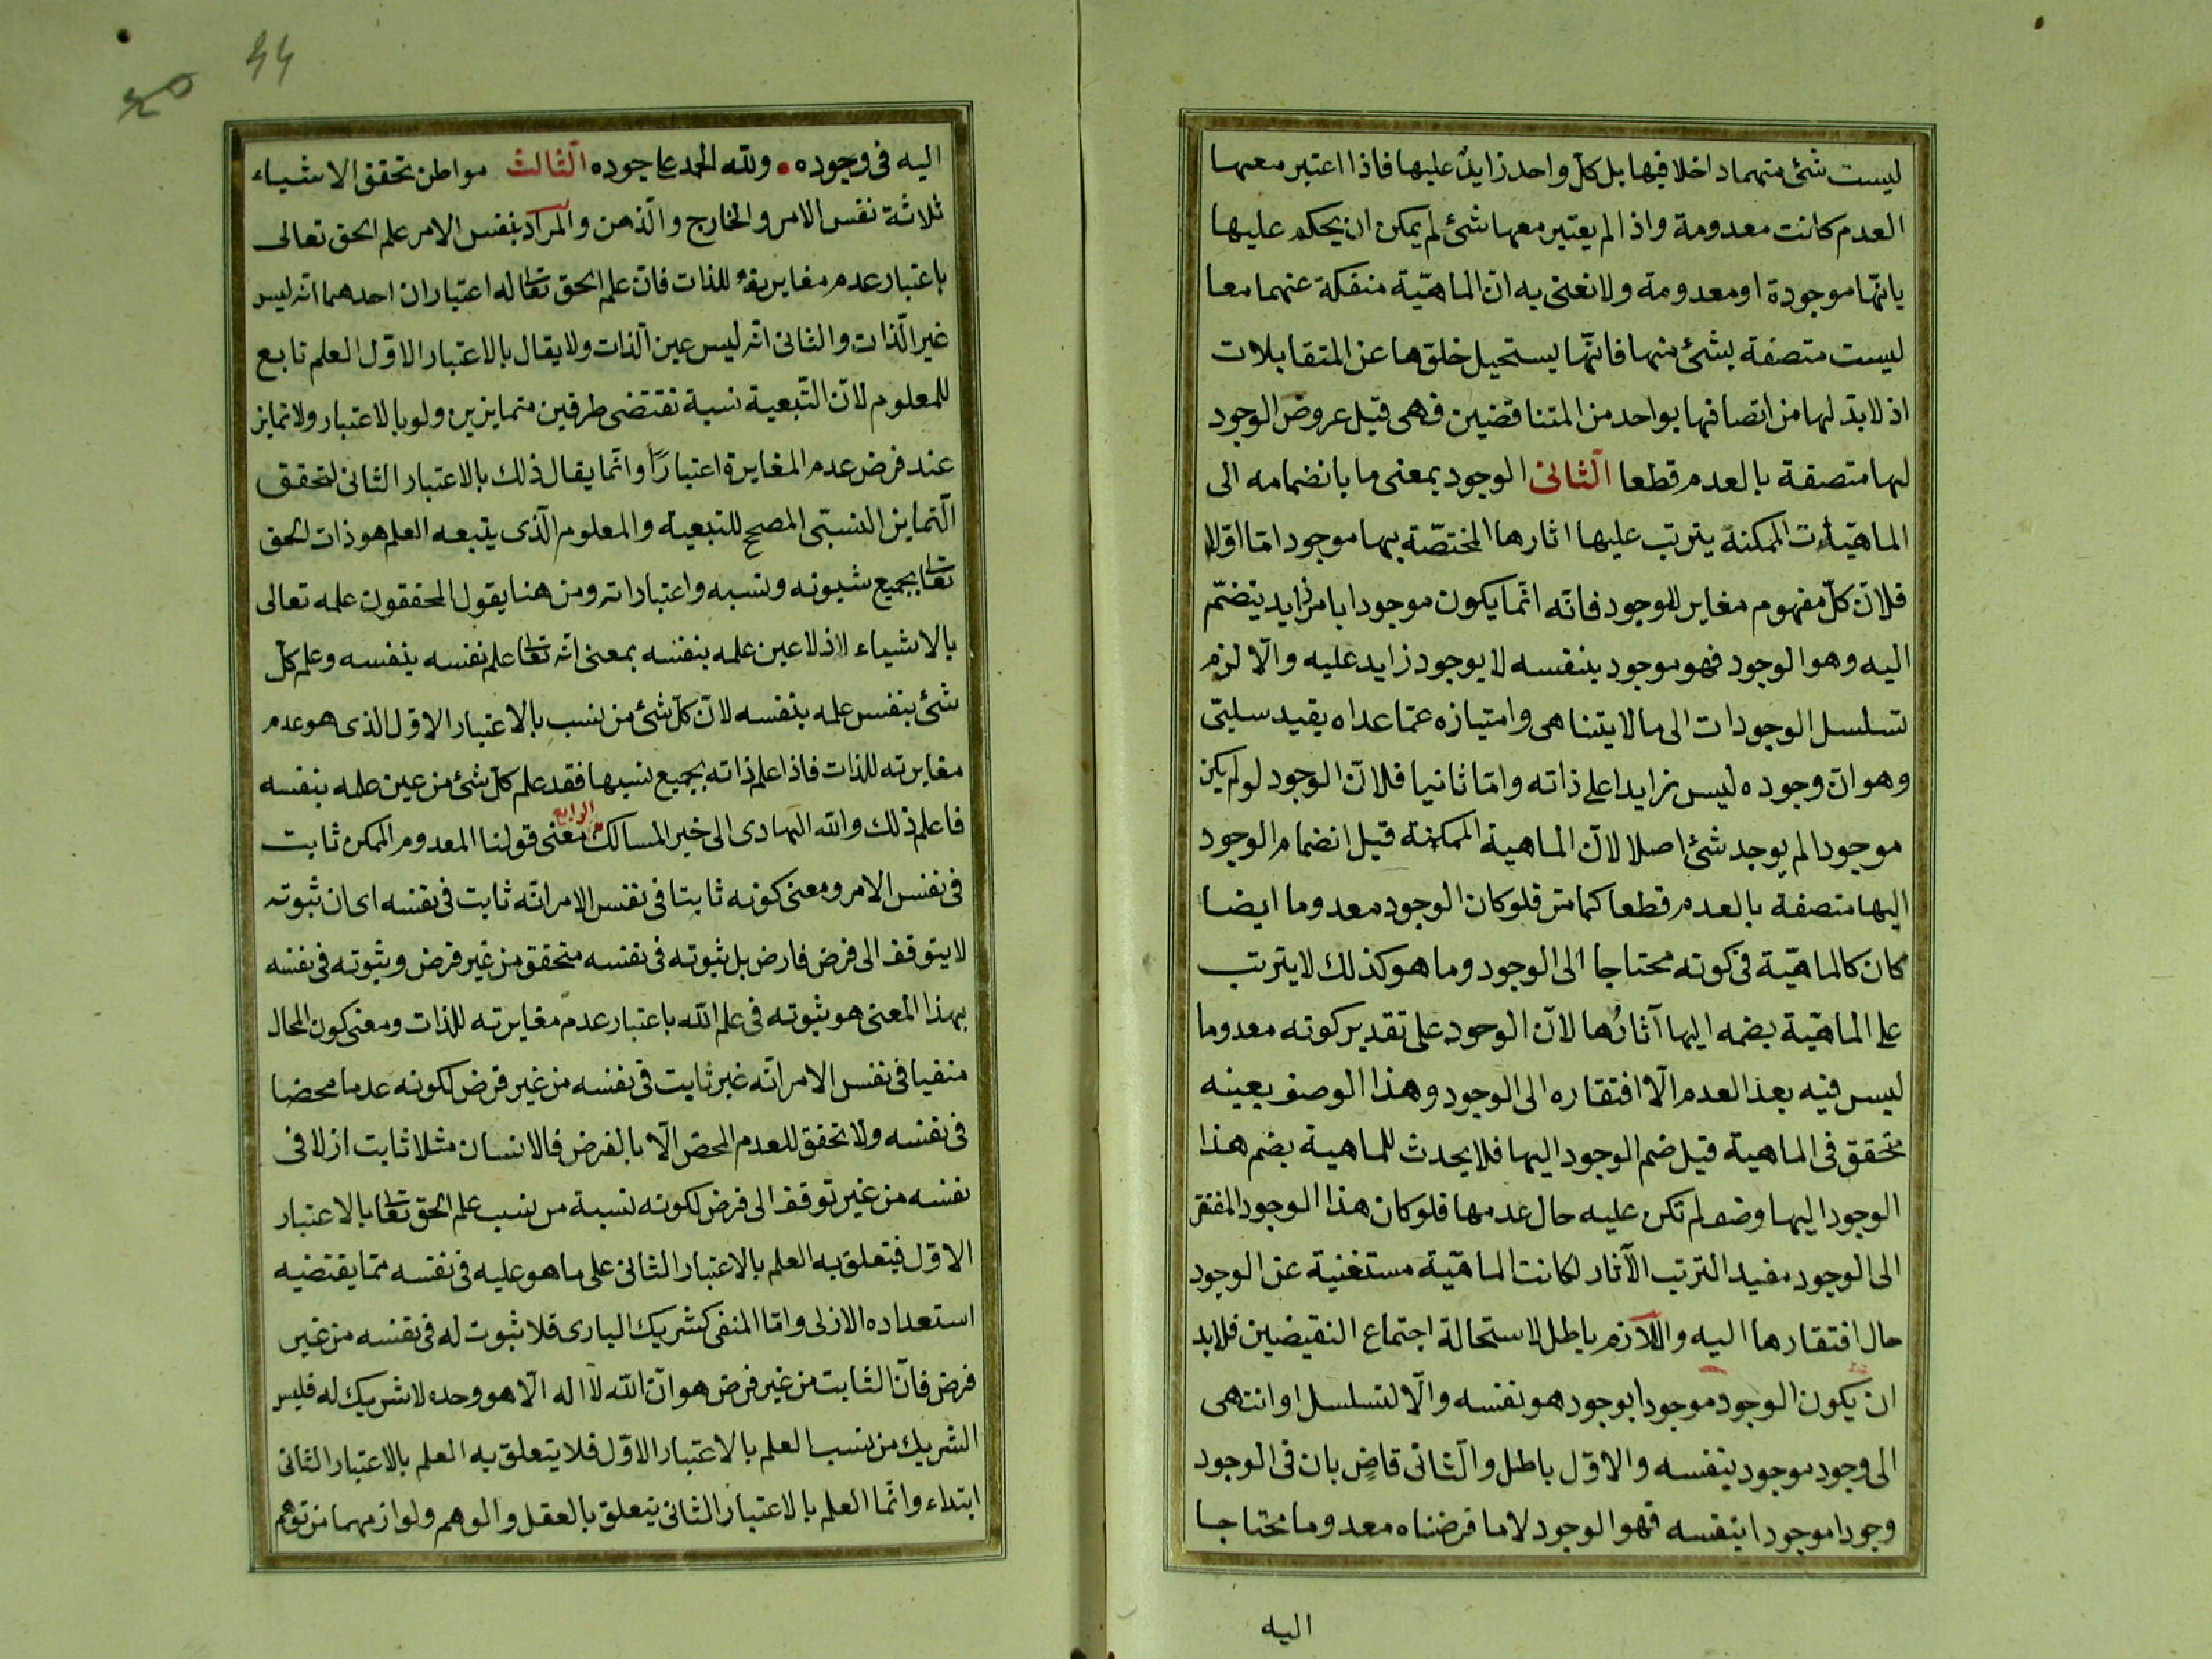 ليست شئ منهما داخلا فيها بل كل واحد زايد عليها فاذا اعتبر معها
العدم كانت معدومة واذا لم يعتبر معها شئ لم يمكن ان يحكم عليها
بانها موجودة او معدومة ولا نعنى به ان الماهيّة منفكة عنهما معا
ليست متصفة بشئ منها فانّها يستحيل خلوّها عن المتقابلات
اذ لا بدّ لها من اتصافها بواحد من المتناقضين فهى قبل عروض الوجود
لها متصفة بالعدم قطعا الثانى الوجود بمعنى ما بانضمامه الى
الماهيّات الممكنة يترتب عليها اثارها المختصّة بها موجود امّا اوّلا
فلانّ كلّ مفهوم مغاير للوجود فانّه انّما يكون موجودا بامر زايد ينضمّ
اليه وهو الوجود فهو موجود بنفسه لا بوجود زايد عليه والّا لزم
تسلسل الوجودات الى ما لا يتناهى وامتيازه عمّا عداه بقيد سلبىّ
وهو انّ وجوده ليس زايدا على ذاته وامّا ثانيا فلانّ الوجود لو لم يكن
موجودا لم يوجد شئ اصلا لانّ الماهية الممكنة قبل انضمام الوجود
اليها متصفة بالعدم قطعا كما مرّ فلو كان الوجود معدوما ايضا
كان كالماهيّة فى كونه محتاجا الى الوجود وما هو كذلك لا يترتب
على الماهيّة بضمه اليها آثارُها لانّ الوجود على تقدير كونه معدوما
ليس فيه بعد العدم الّا افتقاره الى الوجود وهذا الوصف بعينه
متحقق فى الماهية قبل ضم الوجود اليها فلا يحدث للماهية بضم هذا
الوجود اليها وصف لم تكن عليه حال عدمها فلو كان هذا الوجود المفتقر
الى الوجود مفيدا لترتب الآثار لكانت الماهيّة مستغنية عن الوجود
حال افتقارها اليه واللازم باطل لاستحالة اجتماع النقيضين فلا بد
ان يكون الوجود موجودا بوجود هو نفسه والّا لتسلسل او انتهى
الى وجود موجود بنفسه والاوّل باطل والثانى قاضٍ بان فى الوجود
وجودا موجودا بنفسه فهو الوجود لا ما فرضناه معدوما محتاجا
اليه
44
اليه فى وجوده ولله الحمد على جوده الثالث مواطن تحقق الاشياء
ثلاثة نفس الامر والخارج والذهن والمراد بنفس الامر علم الحق تعالى
باعتبار عدم مغايرته للذات فانّ علم الحق تعا له اعتباران احدهما انه ليس
غير الذات والثانى انّه ليس عين الذات ولا يقال بالاعتبار الاوّل العلم تابع
للمعلوم لانّ التّبعية نسبة تقتضى طرفين متمايزين ولو بالاعتبار ولا تمايز
عند فرض عدم المغايرة اعتبارًا وانّما يقال ذلك بالاعتبار الثانى لتحقق
التمايز النسبّى المصحح للتبعية والمعلوم الّذى يتبعه العلم هو ذات الحق
تعا بجميع شيونه ونسبه واعتباراته ومن هنا يقول المحققون علمه تعالى
بالاشياء ازلا عين علمه بنفسه بمعنى انّه تعا علم نفسه بنفسه وعلم كلّ
شئ بنفس علمه بنفسه لانّ كلّ شئ من نسب بالاعتبار الاوّل الذى هو عدم
مغايرته للذات فاذا علم ذاته بجميع نسبها فقد علم كلّ شئ من عين علمه بنفسه
فاعلم ذلك والله الهادى الى خير المسالك الرابع معنى قولنا المعدوم الممكن ثابت
فى نفس الامر ومعنى كونه ثابتا فى نفس الامر انّه ثابت فى نفسه اى ان ثبوته
لا يتوقف الى فرض فارض بل ثبوته فى نفسه متحقق من غير فرض وثبوته فى نفسه
بهذا المعنى هو ثبوته فى علم الله باعتبار عدم مغايرته للذات ومعنى كون المحال
منفيا فى نفس الامر انّه غير ثابت فى نفسه من غير فرض لكونه عدما محضا
فى نفسه ولا تحقق للعدم المحض الّا بالفرض فالانسان مثلا ثابت ازلا فى
نفسه من غير توقف الى فرض لكونه نسبة من نسب علم الحق تعا بالاعتبار
الاوّل فيتعلق به العلم بالاعتبار الثانى على ما هو عليه فى نفسه ممّا يقتضيه
استعداده الازلى وامّا المنفى كشريك البارى فلا ثبوت له فى نفسه من غير
فرض فانّ الثابت من غير فرض هو انّ الله لا اله الّا هو وحده لا شريك له فليس
الشريك من نسب العلم بالاعتبار الاوّل فلا يتعلق به العلم بالاعتبار الثانى
ابتداء وانّما العلم بالاعتبار الثانى يتعلق بالعقل والوهم ولوازمهما من توهم